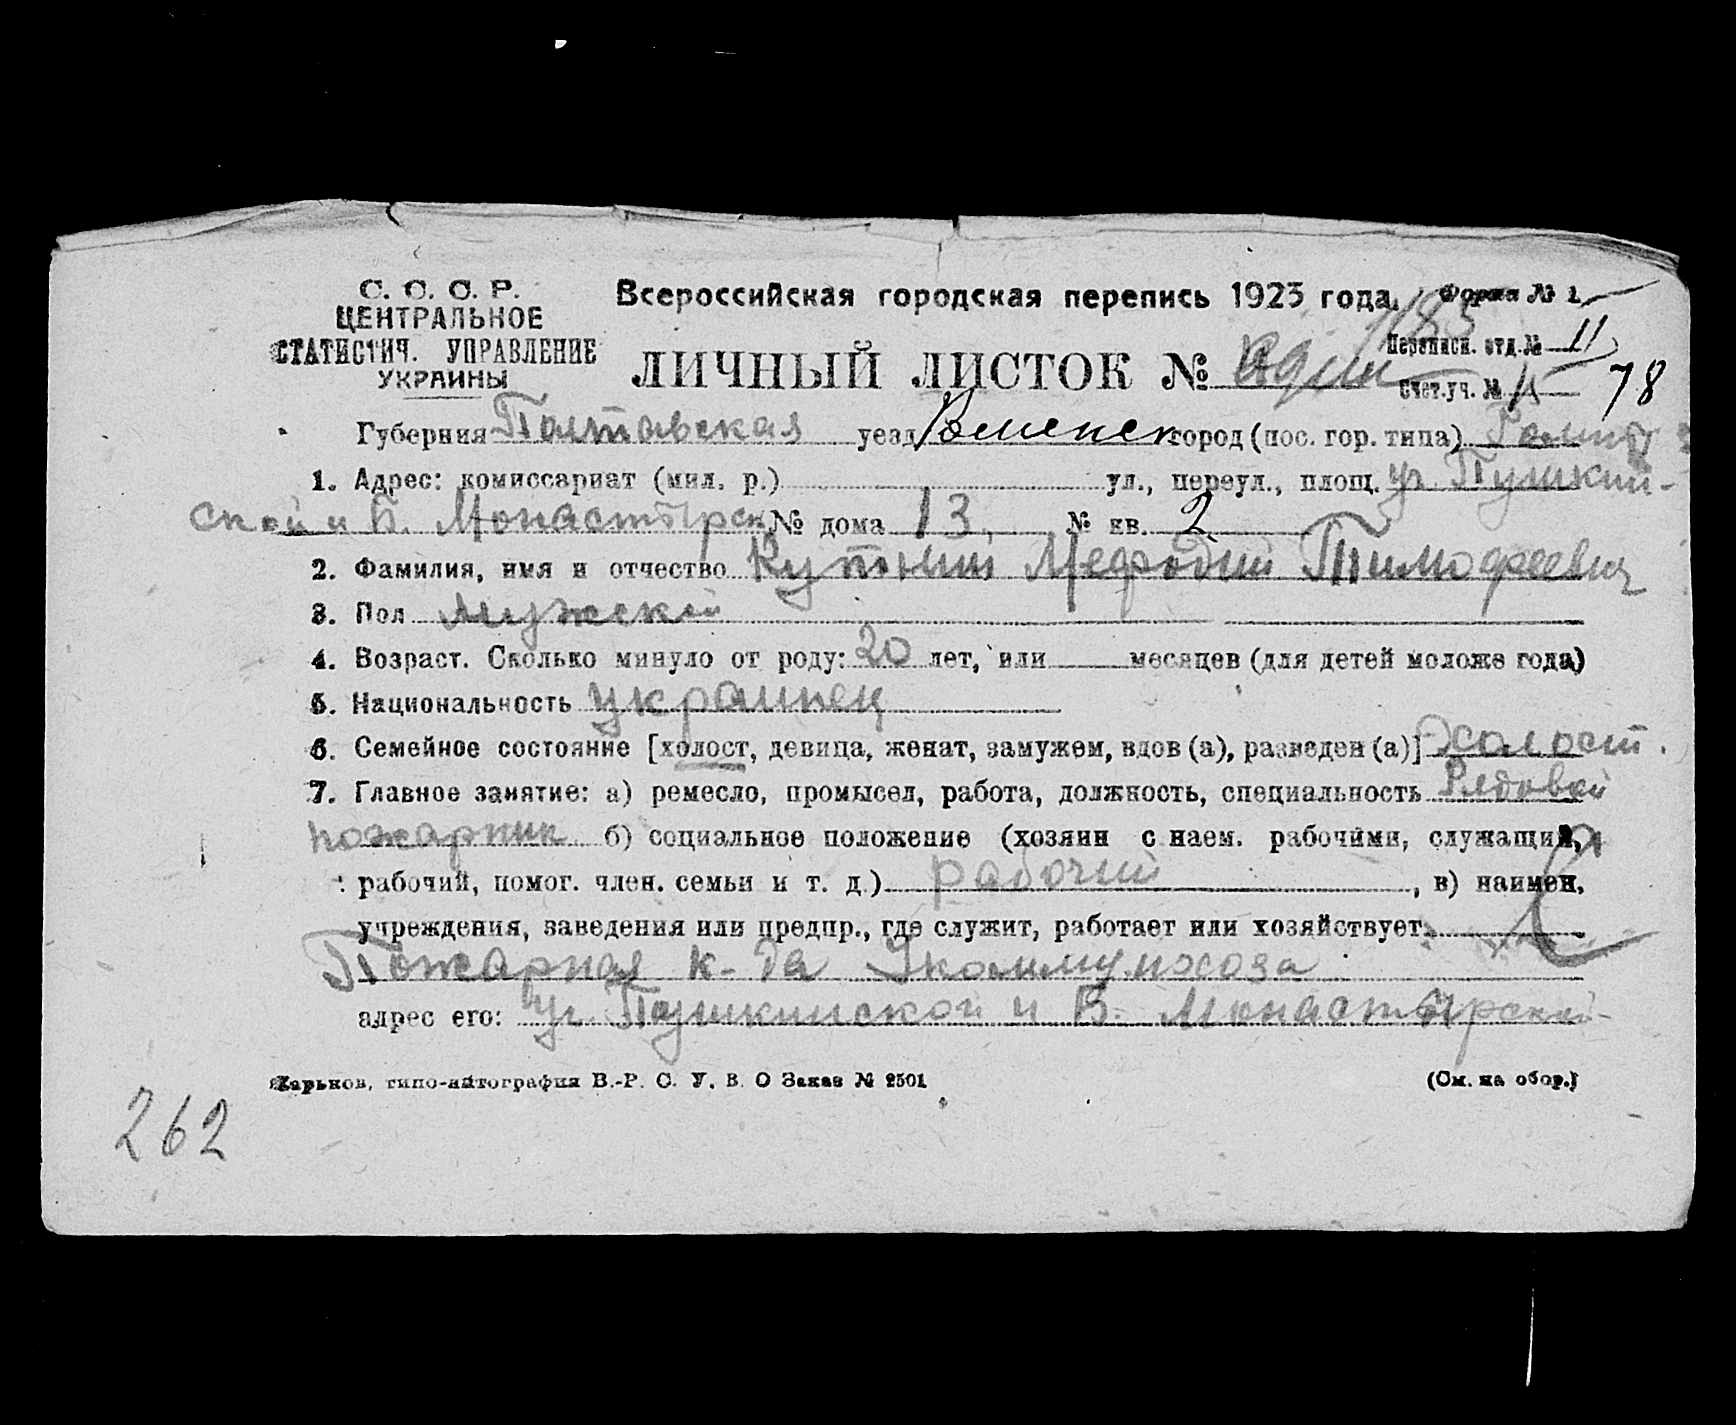 С. С. С. Р.
ЦЕНТРАЛЬНОЕ
СТАТИСТИЧ. УПРАВЛЕНИЕ
УКРАИНЫ
Всероссийская городская перепись 1923 года.
Форма № 1.
183
ЛИЧНЫЙ ЛИСТОК №
Переписн. отд. № 11
Счет. уч. №
78
Губерния Полтавская уезд Роменск город (пос. гор. типа) Ромны
1. Адрес: комиссариат (мил. р.) ул., переул., площ. уг. Пушкин-
ской и Б. Монастырск № дома 13, № кв. 2
2. Фамилия, имя и отчество Кутний Мефодий Тимофеевич
3. Пол мужской
4. Возраст. Сколько минуло от роду: 20 лет, или месяцев (для детей моложе года)
5. Национальность украинец
6. Семейное состояние [холост, девица, женат, замужем, вдов (а), разведен (а)] Холост.
7. Главное занятие: а) ремесло, промысел, работа, должность, специальность Рядовой
пожарник б) социальное положение (хозяин с наем. рабочими, служащий,
рабочий, помог. член. семьи и т. д.) рабочий, в) наимен.
учреждения, заведения или предпр., где служит, работает или хозяйствует.
Пожарная к-да Укоммунхоза
адрес его: уг. Пушкинской и Б. Монастырской
Харьков, типо-литография В.-Р. С. У. В. О Заказ № 2501
(См. на обор.)
262